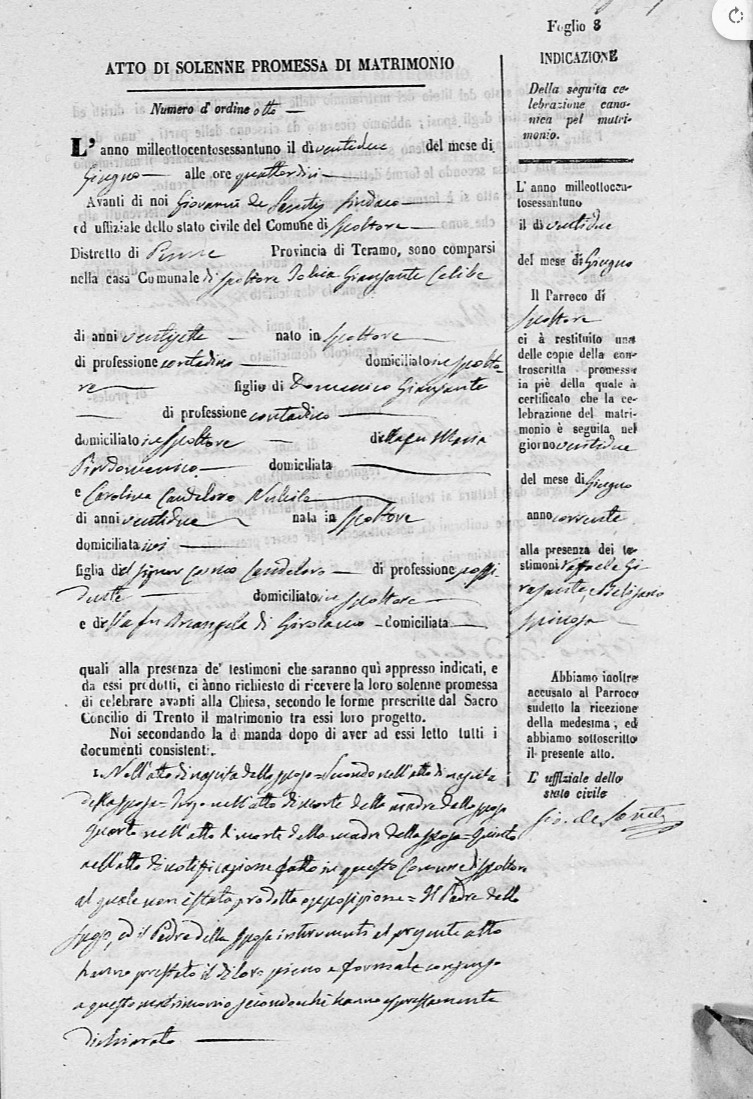 Foglio 8
ATTO DI SOLENNE PROMESSA DI MATRIMONIO
Numero d'ordine otto
L'anno milleottocentosessantuno il dì ventidue del mese di
Giugno alle ore quattordici
Avanti di noi Giovanni de Sanctis Sindaco
ed uffiziale dello stato civile del Comune di Spoltore
Distretto di Penne Provincia di Teramo, sono comparsi
nella casa Comunale di Spoltore Giansante Celibe
di anni ventisette nato in Spoltore
di professione contadino domiciliato in Spolto
re figlio di Domenico Giansante
di professione contadino
domiciliato in Spoltore della fu Maria
domiciliata
e Carolina Candeloro Nubile
di anni ventidue nata in Spoltore
domiciliata ivi
figlia del Signor Candeloro di professione possi
dente domiciliato in Spoltore
e della fu Arcangela di Girolamo domiciliata
quali alla presenza de' testimoni che saranno quì appresso indicati, e
da essi prodotti, ci ànno richiesto di ricevere la loro solenne promessa
di celebrare avanti alla Chiesa, secondo le forme prescritte dal Sacro
Concilio di Trento il matrimonio tra essi loro progetto.
Noi secondando la dimanda dopo di aver ad essi letto tutti i
documenti consistenti.
1. Nell'atto di nascita dello sposo = Secondo nell'atto di nascita
della sposa = Terzo nell'atto di morte della madre dello sposo
quarto nell'atto di morte della madre della sposa = Quinto
nell'atto di notificazione fatto in questo Comune di Spoltore
al quale non è stata prodotta opposizione = Il Padre dello
sposo, ed il Padre della sposa intervenuti al presente atto
hanno prestato il di loro pieno e formale consenso
a questo matrimonio secondochè hanno espressamente
dichiarato
INDICAZIONE
Della seguita ce-
lebrazione cano-
nica pel matri-
monio.
L'anno milleottocen-
tosessantuno
il dì ventidue
del mese di Giugno
Il Parroco di
Spoltore
ci à restituito una
delle copie della con-
troscritta promessa
in piè della quale à
certificato che la ce-
lebrazione del matri-
monio è seguita nel
giorno ventidue
del mese di Giugno
anno corrente
alla presenza dei te-
stimoni Raffaele
Abbiamo inoltre
accusato al Parroco
sudetto la ricezione
della medesima, ed
abbiamo sottoscritto
il presente atto.
L'uffiziale dello
stato civile
Gio. de Sanctis